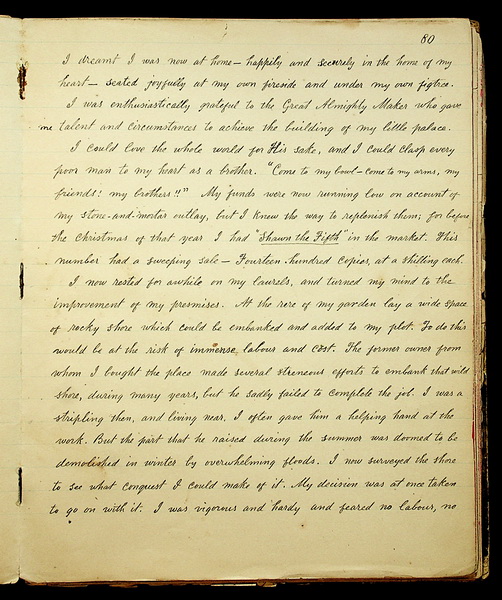 80
I dreamt I was now at home — happily and securely in the home of my
heart — seated joyfully at my own fireside and under my own figtree.
I was enthusiastically grateful to the Great Almighty Maker who gave
me talent and circumstances to achieve the building of my little palace.
I could love the whole world for His sake, and I could clasp every
poor man to my heart as a brother. "Come to my bowl — come to my arms, my
friends! my brothers!!" My funds were now running low on account of
my stone-and-mortar outlay, but I knew the way to replenish them; for before
the Christmas of that year I had "Shawn the Fifth" in the market. This
number had a sweeping sale — Fourteen hundred copies, at a shilling each.
I now rested for awhile on my laurels, and turned my mind to the
improvement of my premises. At the rere of my garden lay a wide space
of rocky shore which could be embanked and added to my plot. To do this
would be at the risk of immense labour and cost. The former owner from
whom I bought the place made several streneous efforts to embank that wild
shore, during many years, but he sadly failed to complete the job. I was a
stripling then, and living near, I often gave him a helping hand at the
work. But the part that he raised during the summer was doomed to be
demolished in winter by overwhelming floods. I now surveyed the shore
to see what conquest I could make of it. My decision was at once taken
to go on with it. I was vigorous and hardy and feared no labour, no